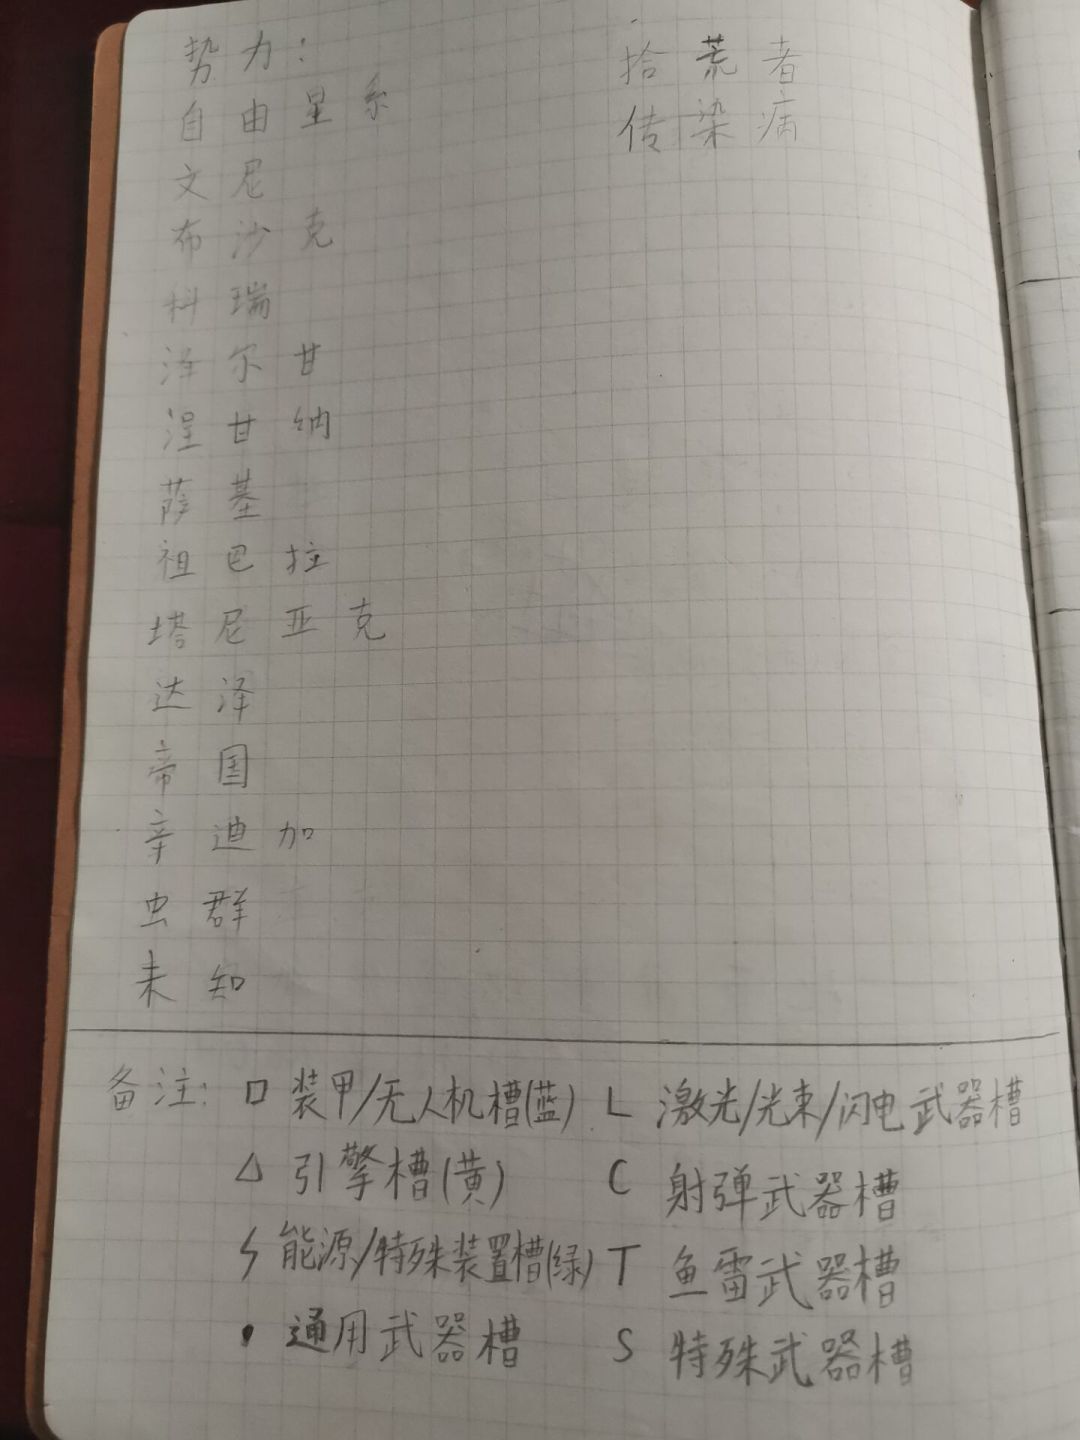 势力:
自由星系
文尼
布沙克
科瑞
泽尔甘
涅甘纳
萨基
祖巴拉
塔尼亚克
达泽
帝国
辛迪加
虫群
未知
拾荒者
传染病
备注: □ 装甲/无人机槽(蓝) L 激光/光束/闪电武器槽
△ 引擎槽(黄) C 射弹武器槽
ϟ 能源/特殊装置槽(绿) T 鱼雷武器槽
• 通用武器槽 S 特殊武器槽